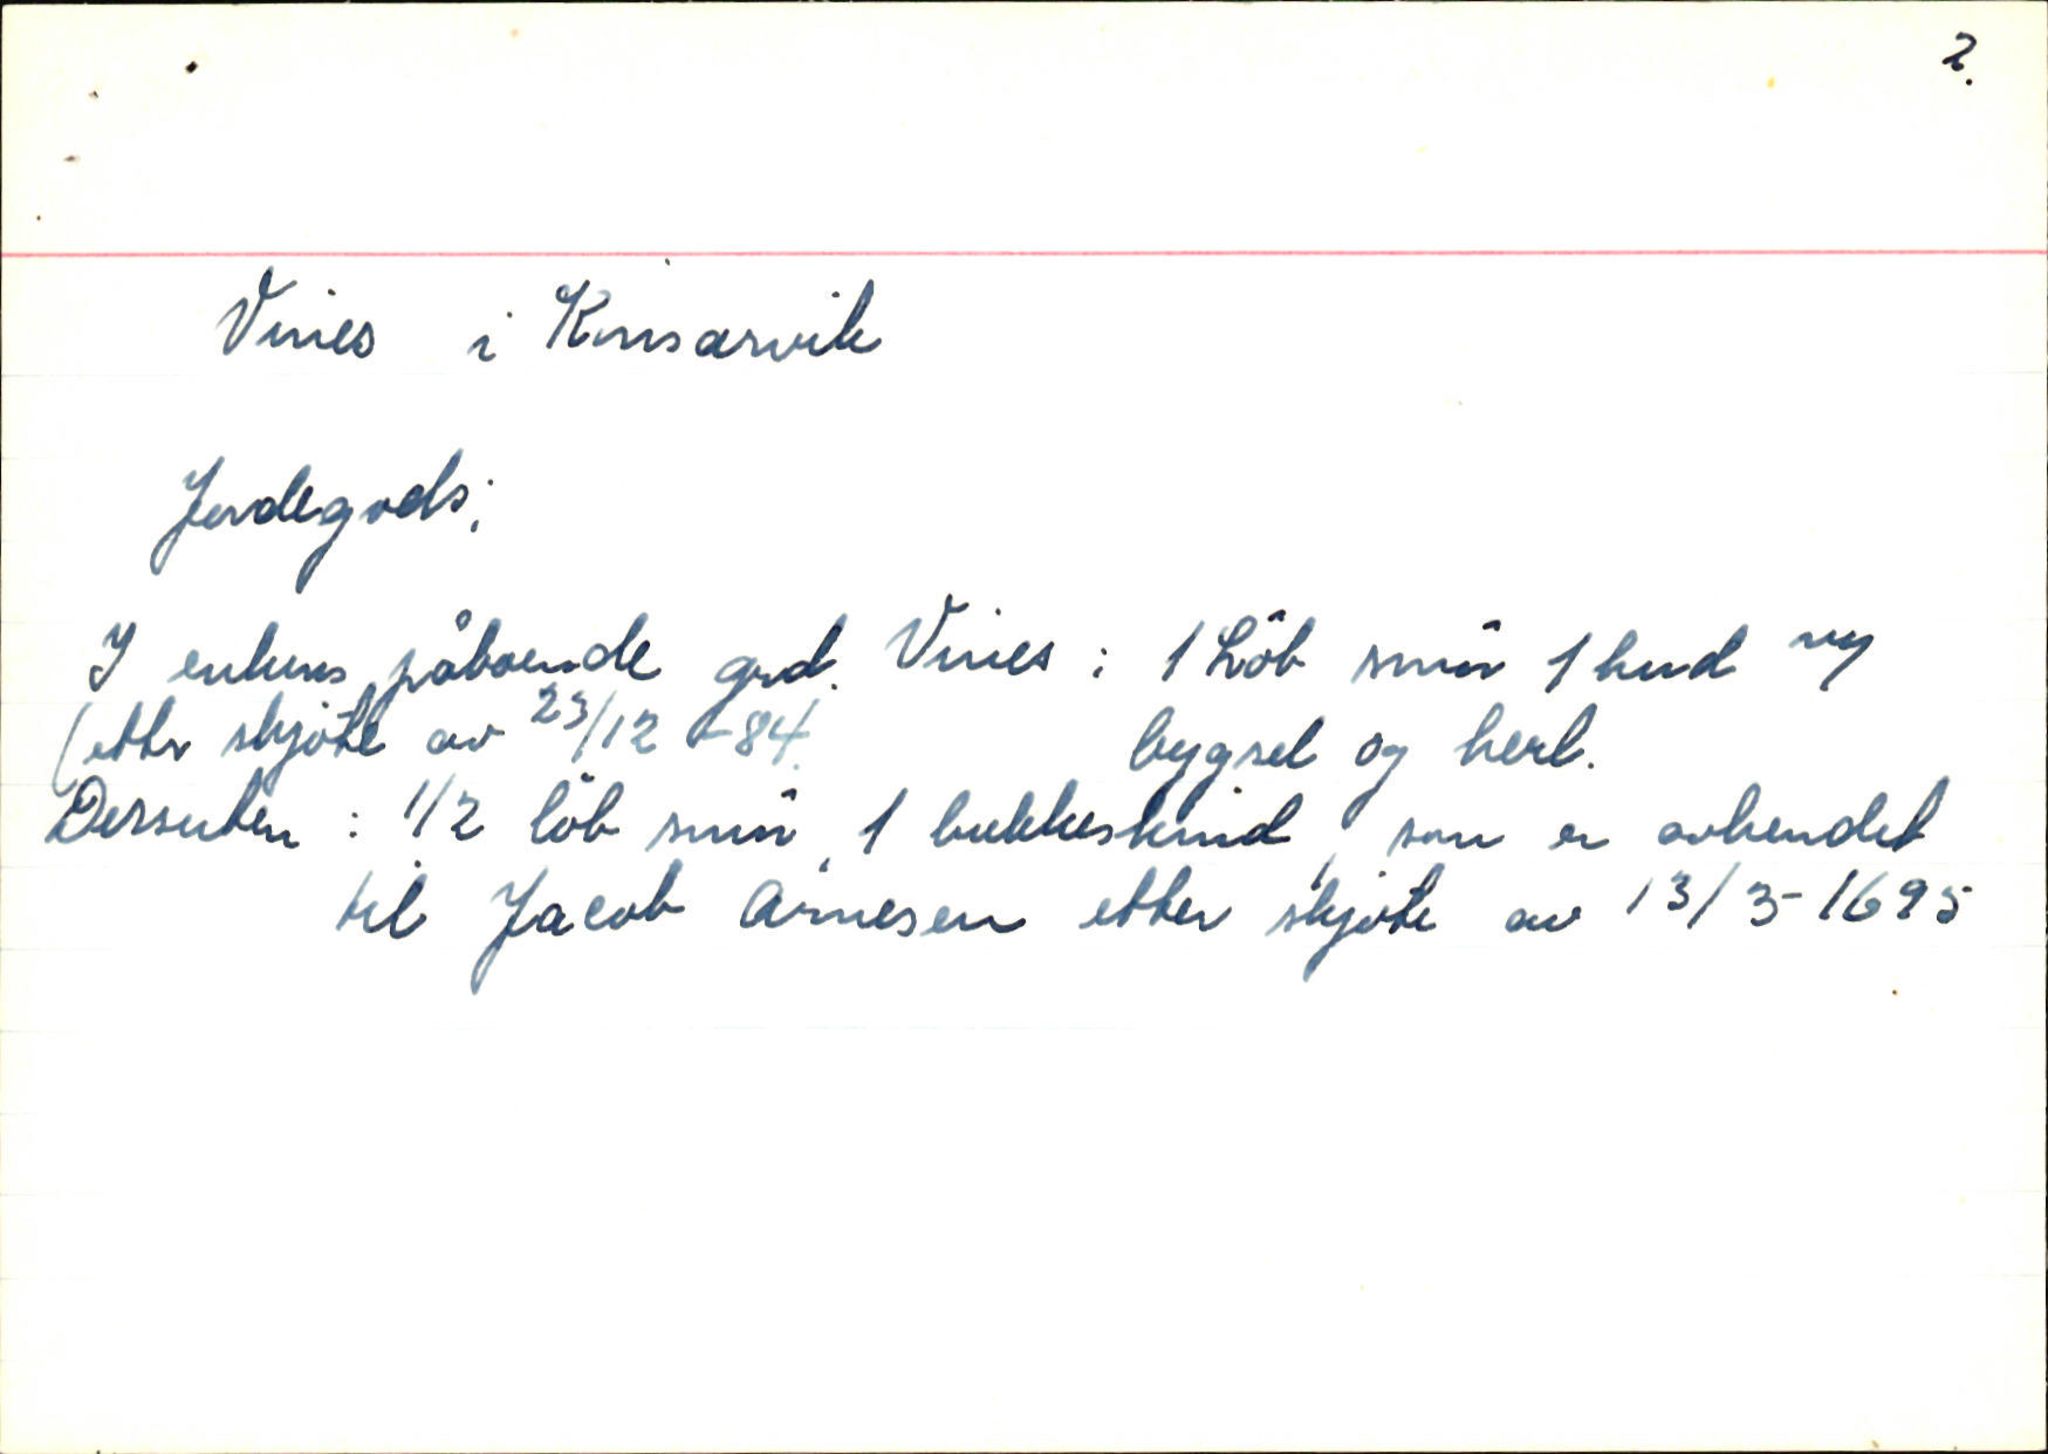 2.
Vines i Kinsarvik
Jordegods:
I enkens påboende grd. Vines : 1 Löb smör 1 hud m/
(etter skjöte av 23/12 - 84. bygsel og herl.
Dersuten : 1/2 löb smör, 1 bukkeskind, som er avhendet
til Jacob Arnesen etter skjöte av 13/3-1695